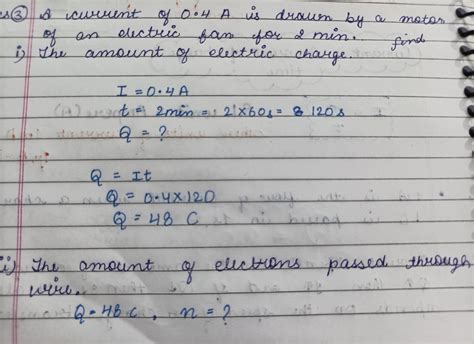 ③ A current of 0.4 A is drawn by a motor
of an electric fan for 2 min. find
i) The amount of electric charge.
I = 0.4A
t = 2min = 2×60s = 120s
Q = ?
Q = It
Q = 0.4×120
Q = 48 C
ii) The amount of electrons passed through
wire.
Q = 48 C, n = ?